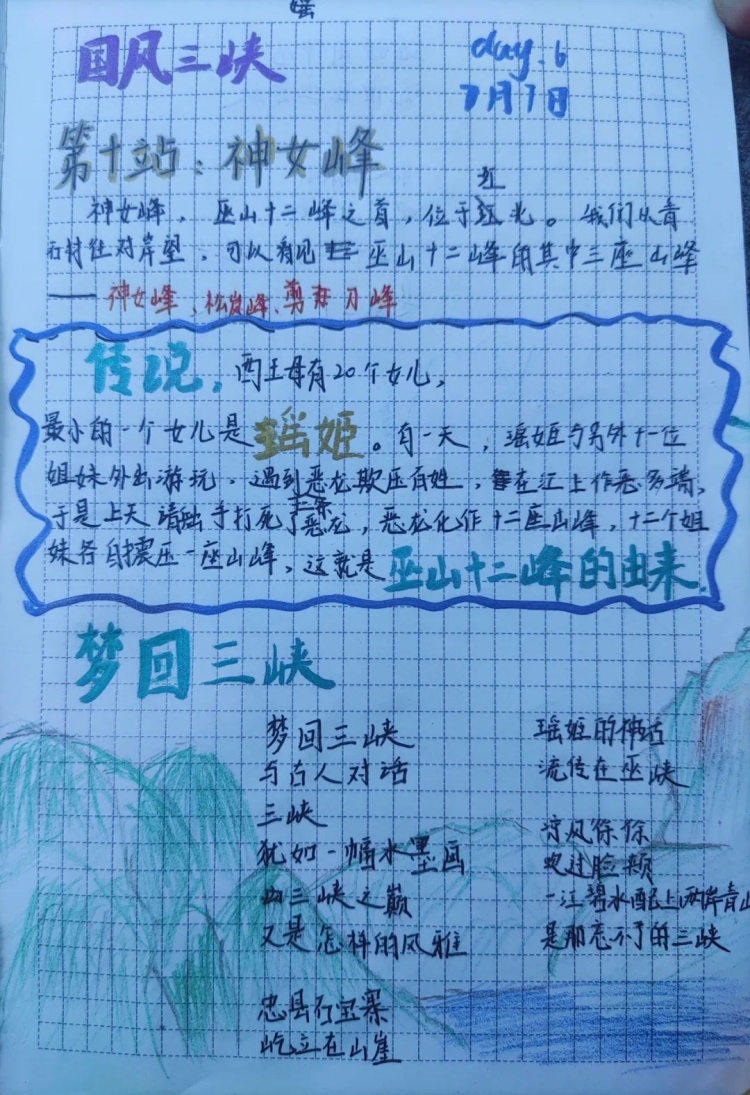 瑶
国风三峡
day.6
7月7日
第十站：神女峰
神女峰，巫山十二峰之首，位于江北。我们从青
石村往对岸望，可以看见巫山十二峰的其中三座山峰
——神女峰，松峦峰、剪刀峰
传说，西王母有20个女儿，
最小的一个女儿是瑶姬。有一天，瑶姬与另外十一位
姐妹外出游玩，遇到恶龙欺压百姓，在江上作恶多端，
于是上天请缨手打死了十二条恶龙，恶龙化作十二座山峰，十二个姐
妹各自震压一座山峰，这就是巫山十二峰的由来.
梦回三峡
梦回三峡
与古人对话
三峡
犹如一幅水墨画
由三峡之巅
又是怎样的风雅
忠县石宝寨
屹立在山崖
瑶姬的神话
流传在巫峡
凉风徐徐
吹过脸颊
一江碧水配上两岸青山
是那忘不了的三峡